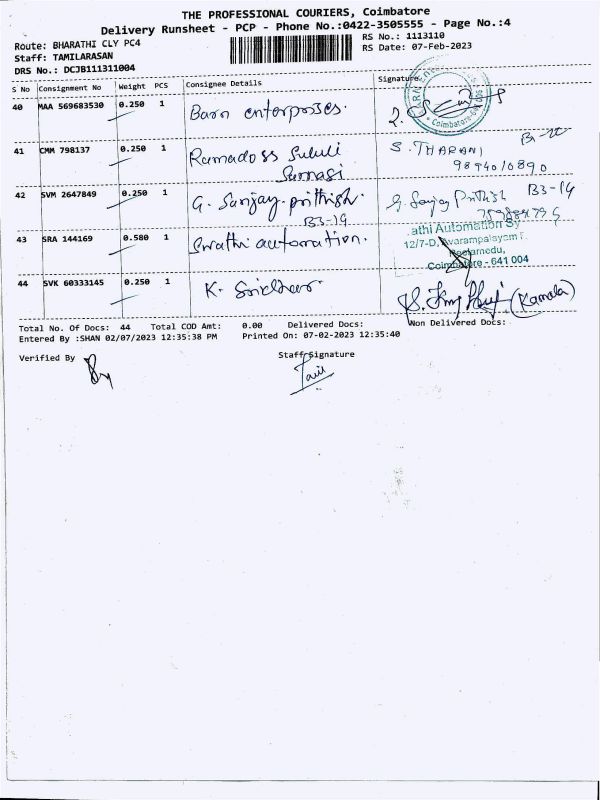 THE PROFESSIONAL COURIERS, Coimbatore
Delivery Runsheet - PCP - Phone No.:0422-3505555 - Page No.:4
Route: BHARATHI CLY PC4
RS No.: 1113110
Staff: TAMILARASAN
RS Date: 07-Feb-2023
DRS No.: DCJB111311004
S No Consignment No Weight PCS Consignee Details Signature
40 MAA 569683530 0.250 1 Barn enterprises.
Coimbatore
41 CMM 798137 0.250 1 Ramadoss S. THARANI
9894010890
42 SVM 2647849 0.250 1 G. Sanjay prithish. G. Sanjay Prithish B3-14
B3-19
43 SRA 144169 0.580 1 Swathi automation. athi Automation Sy
12/7-D, Avarampalayam
Peelamedu,
Coimbatore - 641 004
44 SVK 60333145 0.250 1 K. Sridhar. (Kamala)
Total No. Of Docs: 44 Total COD Amt: 0.00 Delivered Docs: Non Delivered Docs:
Entered By :SHAN 02/07/2023 12:35:38 PM Printed On: 07-02-2023 12:35:40
Verified By Staff Signature